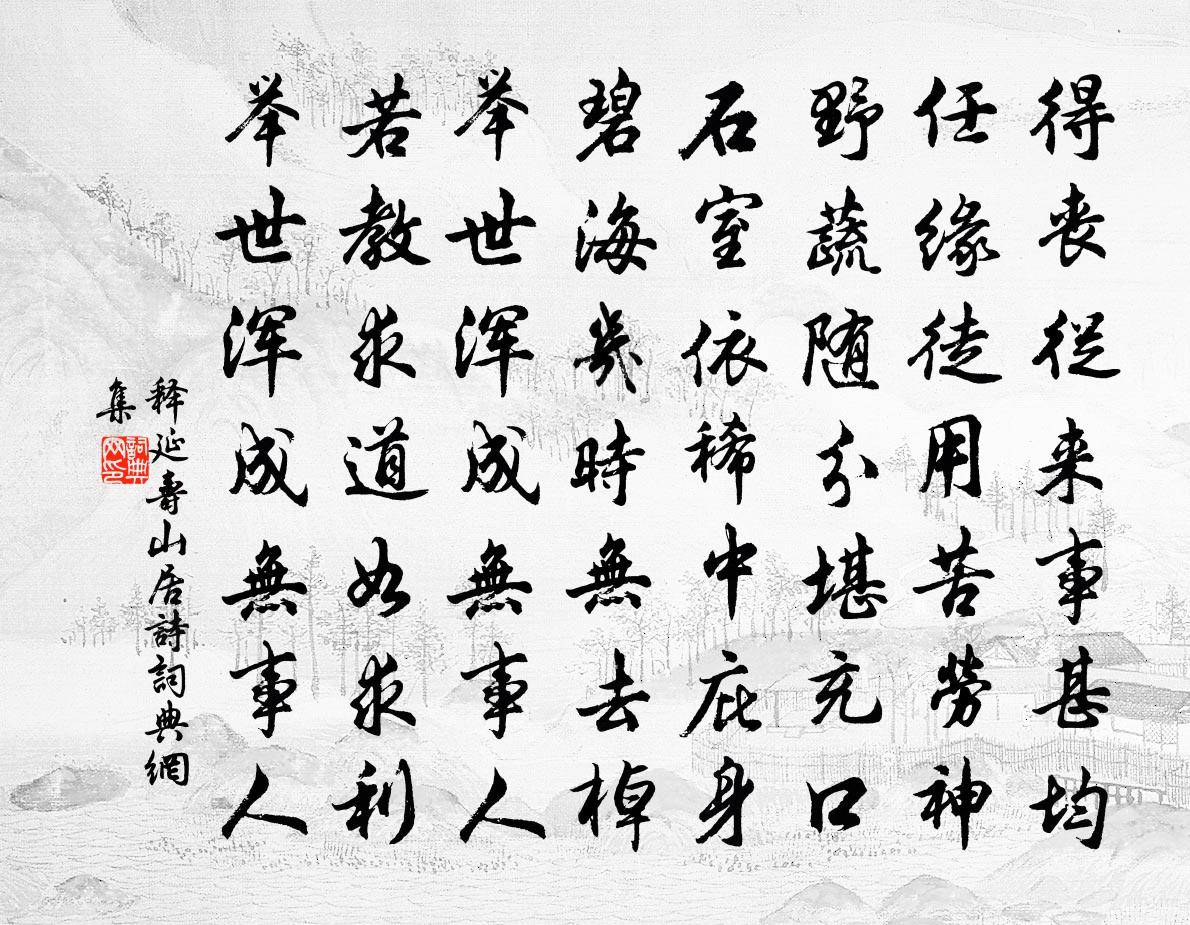 得丧從来事甚均
任缘徒用苦勞神
野蔬随分堪充口
石室依稀中庇身
碧海幾時無去棹
举世浑成無事人
若教求道如求利
举世浑成無事人
释延壽山居詩詞典網
集
詞典
网印